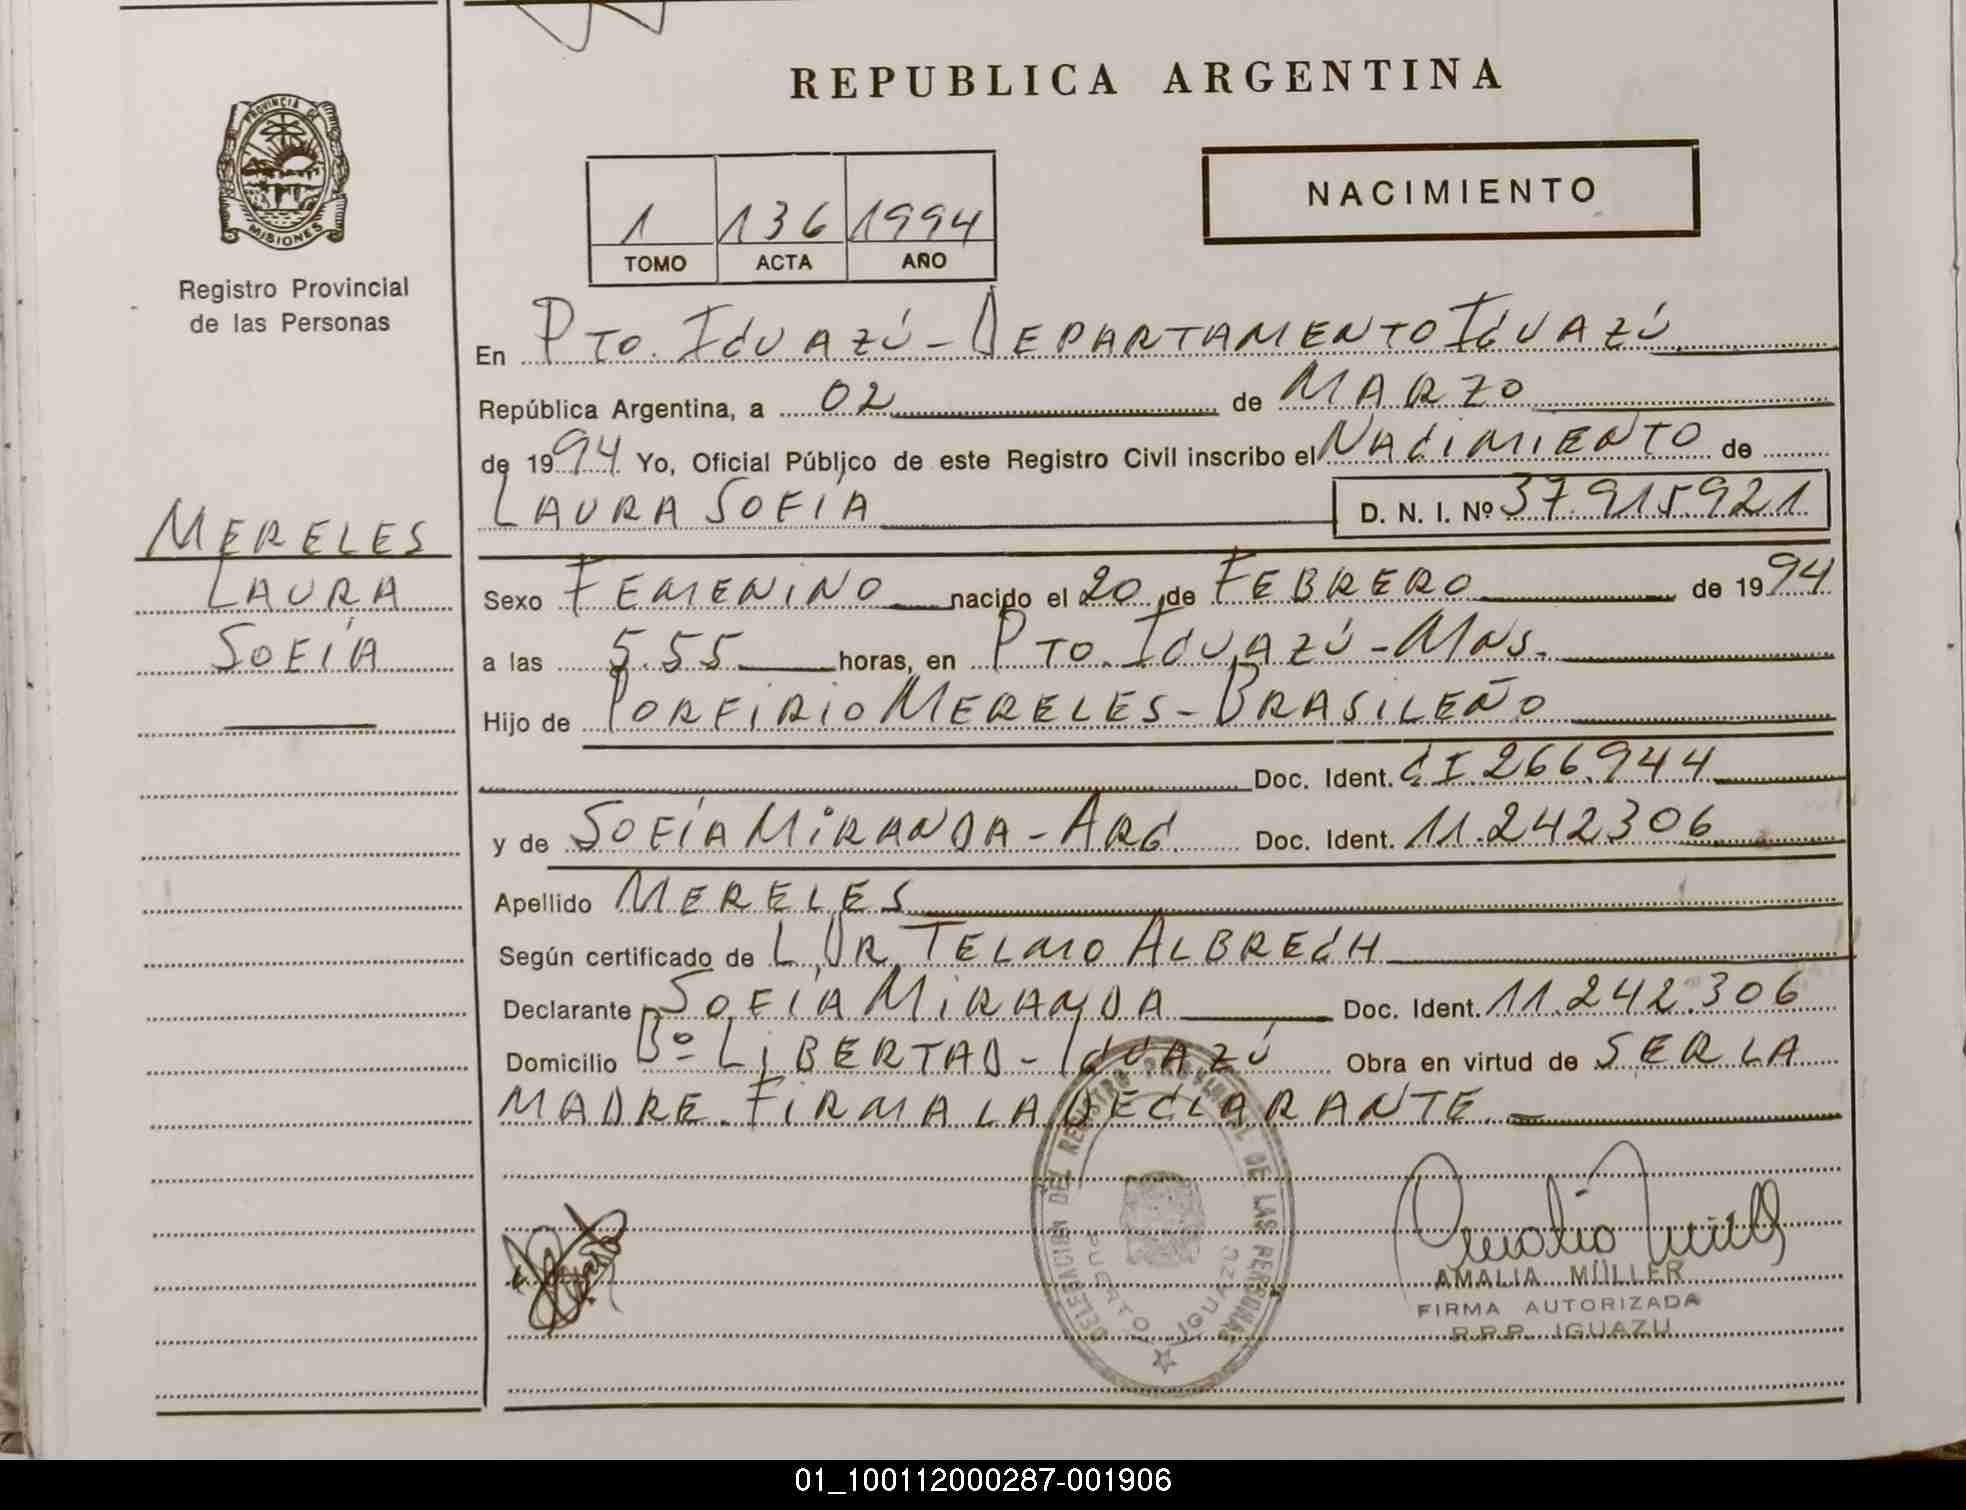 REPUBLICA ARGENTINA
PROVINCIA DE
MISIONES
Registro Provincial
de las Personas
NACIMIENTO
1 136 1994
TOMO ACTA AÑO
En PTO. IGUAZÚ - DEPARTAMENTO IGUAZÚ
República Argentina, a 02 de MARZO
de 1994 Yo, Oficial Público de este Registro Civil inscribo el NACIMIENTO de
LAURA SOFIA D. N. I. Nº 37.915.921
MERELES
LAURA
SOFÍA
Sexo FEMENINO nacido el 20 de FEBRERO de 1994
a las 5.55 horas, en PTO. IGUAZÚ - MNS.
Hijo de PORFIRIO MERELES - BRASILEÑO
Doc. Ident. CI 266.944
y de SOFÍA MIRANDA - ARG Doc. Ident. 11.242306
Apellido MERELES
Según certificado de L. DR. TELMO ALBRECH
Declarante SOFIA MIRANDA Doc. Ident. 11.242.306
Domicilio Bº LIBERTAD - IGUAZÚ Obra en virtud de SER LA
MADRE. FIRMA LA DECLARANTE
DELEGACION DEL REGISTRO PROVINCIAL DE LAS PERSONAS
PUERTO IGUAZU
AMALIA MÜLLER
FIRMA AUTORIZADA
R.P.P. IGUAZU
01_100112000287-001906